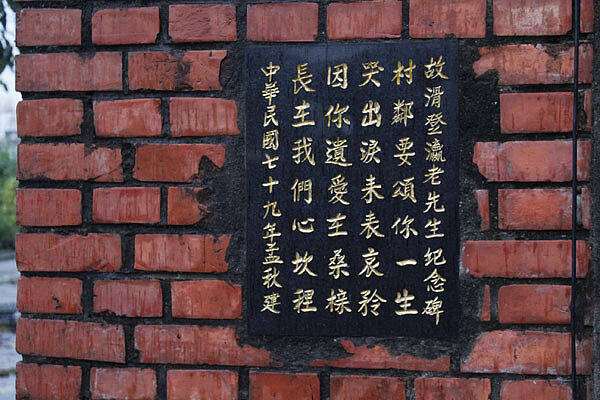 故滑登瀛老先生紀念碑
村鄰要頌你一生
哭出淚来表哀矜
因你遺愛在桑榟
長在我們心坎裡
中華民國七十九年孟秋建